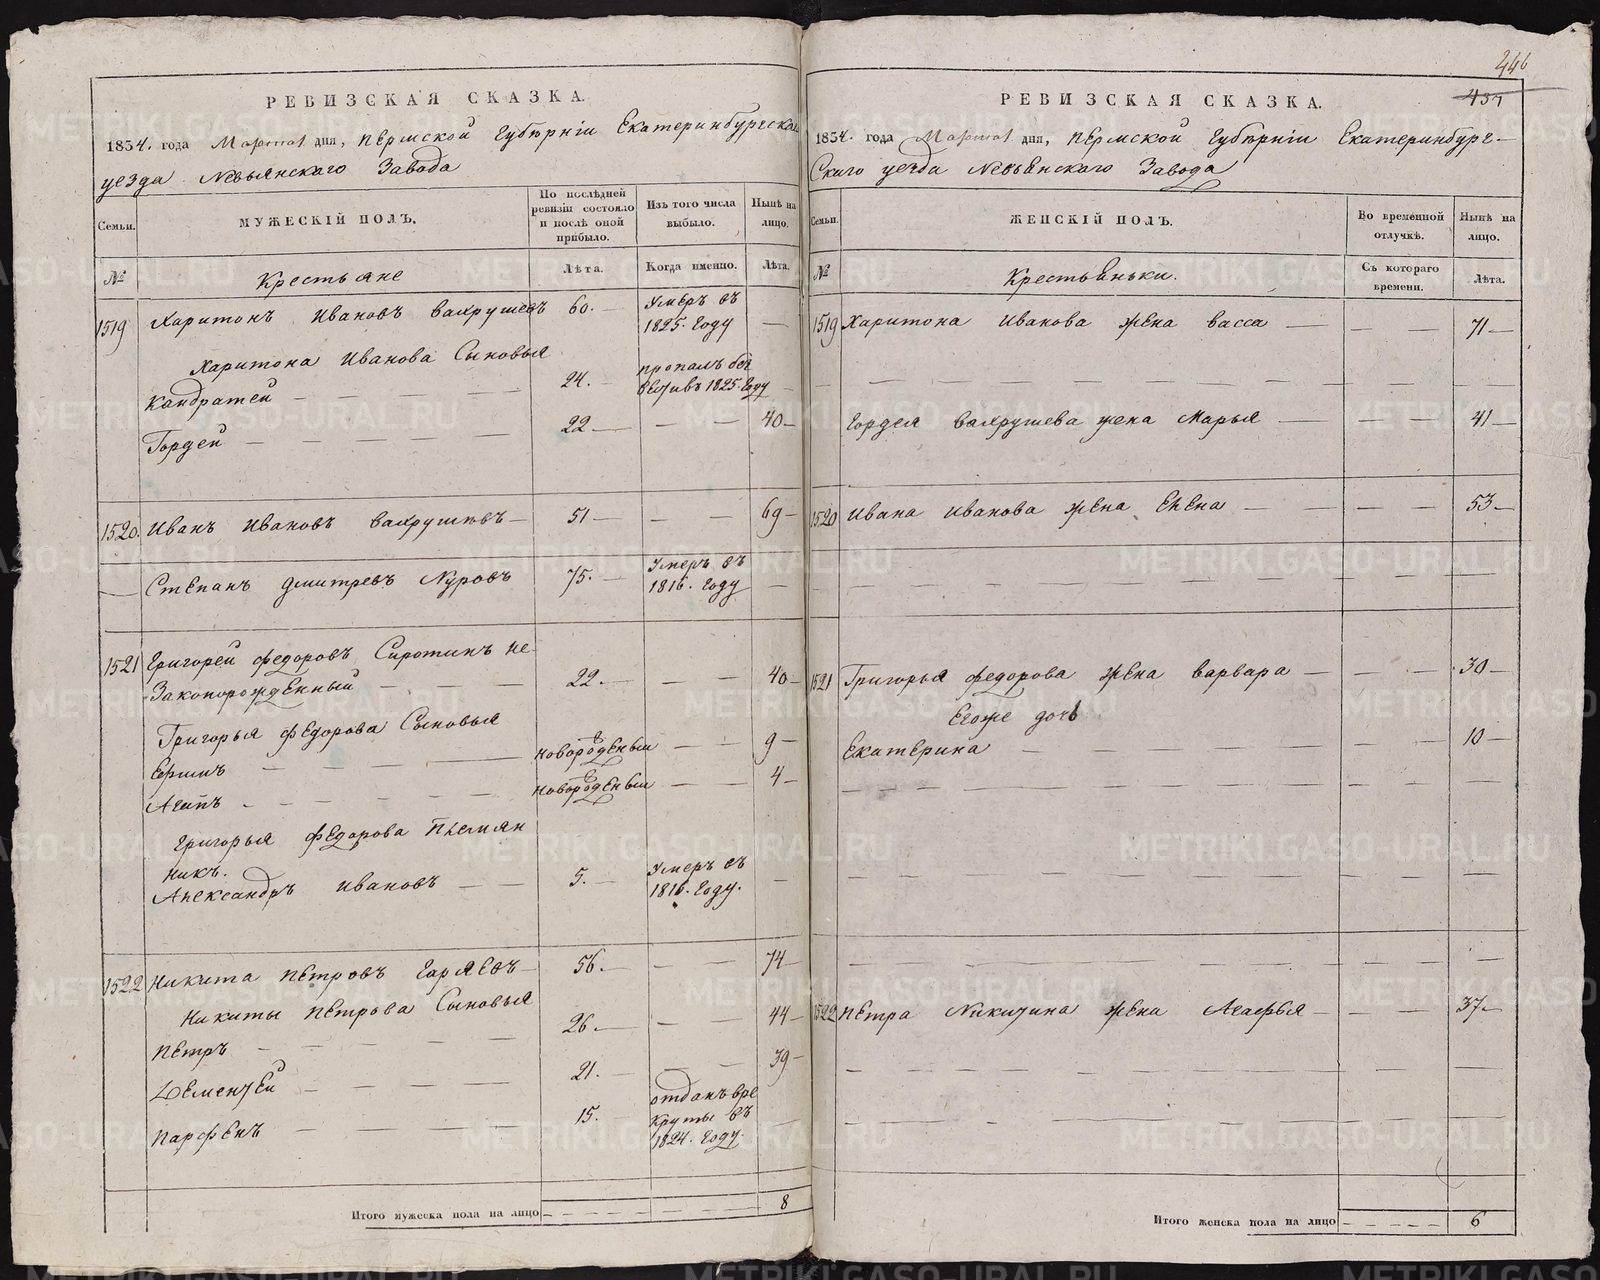 РЕВИЗСКАЯ СКАЗКА.
1834. года Марта 1 дня, Пермской Губѣрніи Екатеринбургскаго
уезда Невьянскаго Завода
Семьи.
МУЖЕСКІЙ ПОЛЪ.
По послѣдней ревизіи состояло и послѣ оной прибыло.
Изъ того числа выбыло.
Нынѣ на лицо.
№
Крестьяне
Лѣта.
Когда именно.
Лѣта.
1519 Харитонъ Ивановъ Вахрушевъ 60. — Умеръ въ 1825. Году —
Харитона Иванова Сыновья
Кандратей — — — — 24. — пропалъ без вести въ 1825. Году —
Гордей — — — 22 — — — 40 —
1520. Иванъ Ивановъ Вахрушевъ — 51 — — — 69 —
— Степанъ Дмитревъ Нуровъ 75. — Умеръ въ 1816. Году —
1521 Григорей Федоровъ Сиротинъ не-
Законорожденный — — — 22. — — — 40 —
Григорья Федорова Сыновья
Ефимъ — — — новорожденый — — 9 —
Агапъ — — — — новорожденый — — 4 —
Григорья Федорова Племян
никъ.
Александръ Ивановъ — — 5. — Умеръ въ 1816. Году. —
1522 Никита Петровъ Гаряевъ — 56. — — — 74 —
Никиты Петрова Сыновья
Петръ — — — — 26. — — — 44 —
Дементей — — — — 21. — — 39 —
Парфенъ — — — — 15. — отданъ в ре круты въ 1824. Году.
Итого мужеска пола на лицо — — — — 8
446
437
РЕВИЗСКАЯ СКАЗКА.
1834. года Марта 1 дня, Пермской Губѣрніи Екатеринбург-
Скаго уезда Невьянскаго Завода
Семьи.
ЖЕНСКІЙ ПОЛЪ.
Во временной отлучкѣ.
Нынѣ на лицо.
№
Крестьянъки.
Съ котораго времени.
Лѣта.
1519 Харитона Иванова жена Васса — — — 71 —
Гордея Вахрушева жена Марья — — — 41 —
1520 Ивана Иванова жена Елена — — — 53 —
1521 Григорья Федорова жена Варвара — — — 30 —
Егоже дочь
Екатерина — — — — — — 10 —
1522 Петра Никитина жена Агафья — — — 37 —
Итого женска пола на лицо — — — — 6
METRIKI.GASO-URAL.RU